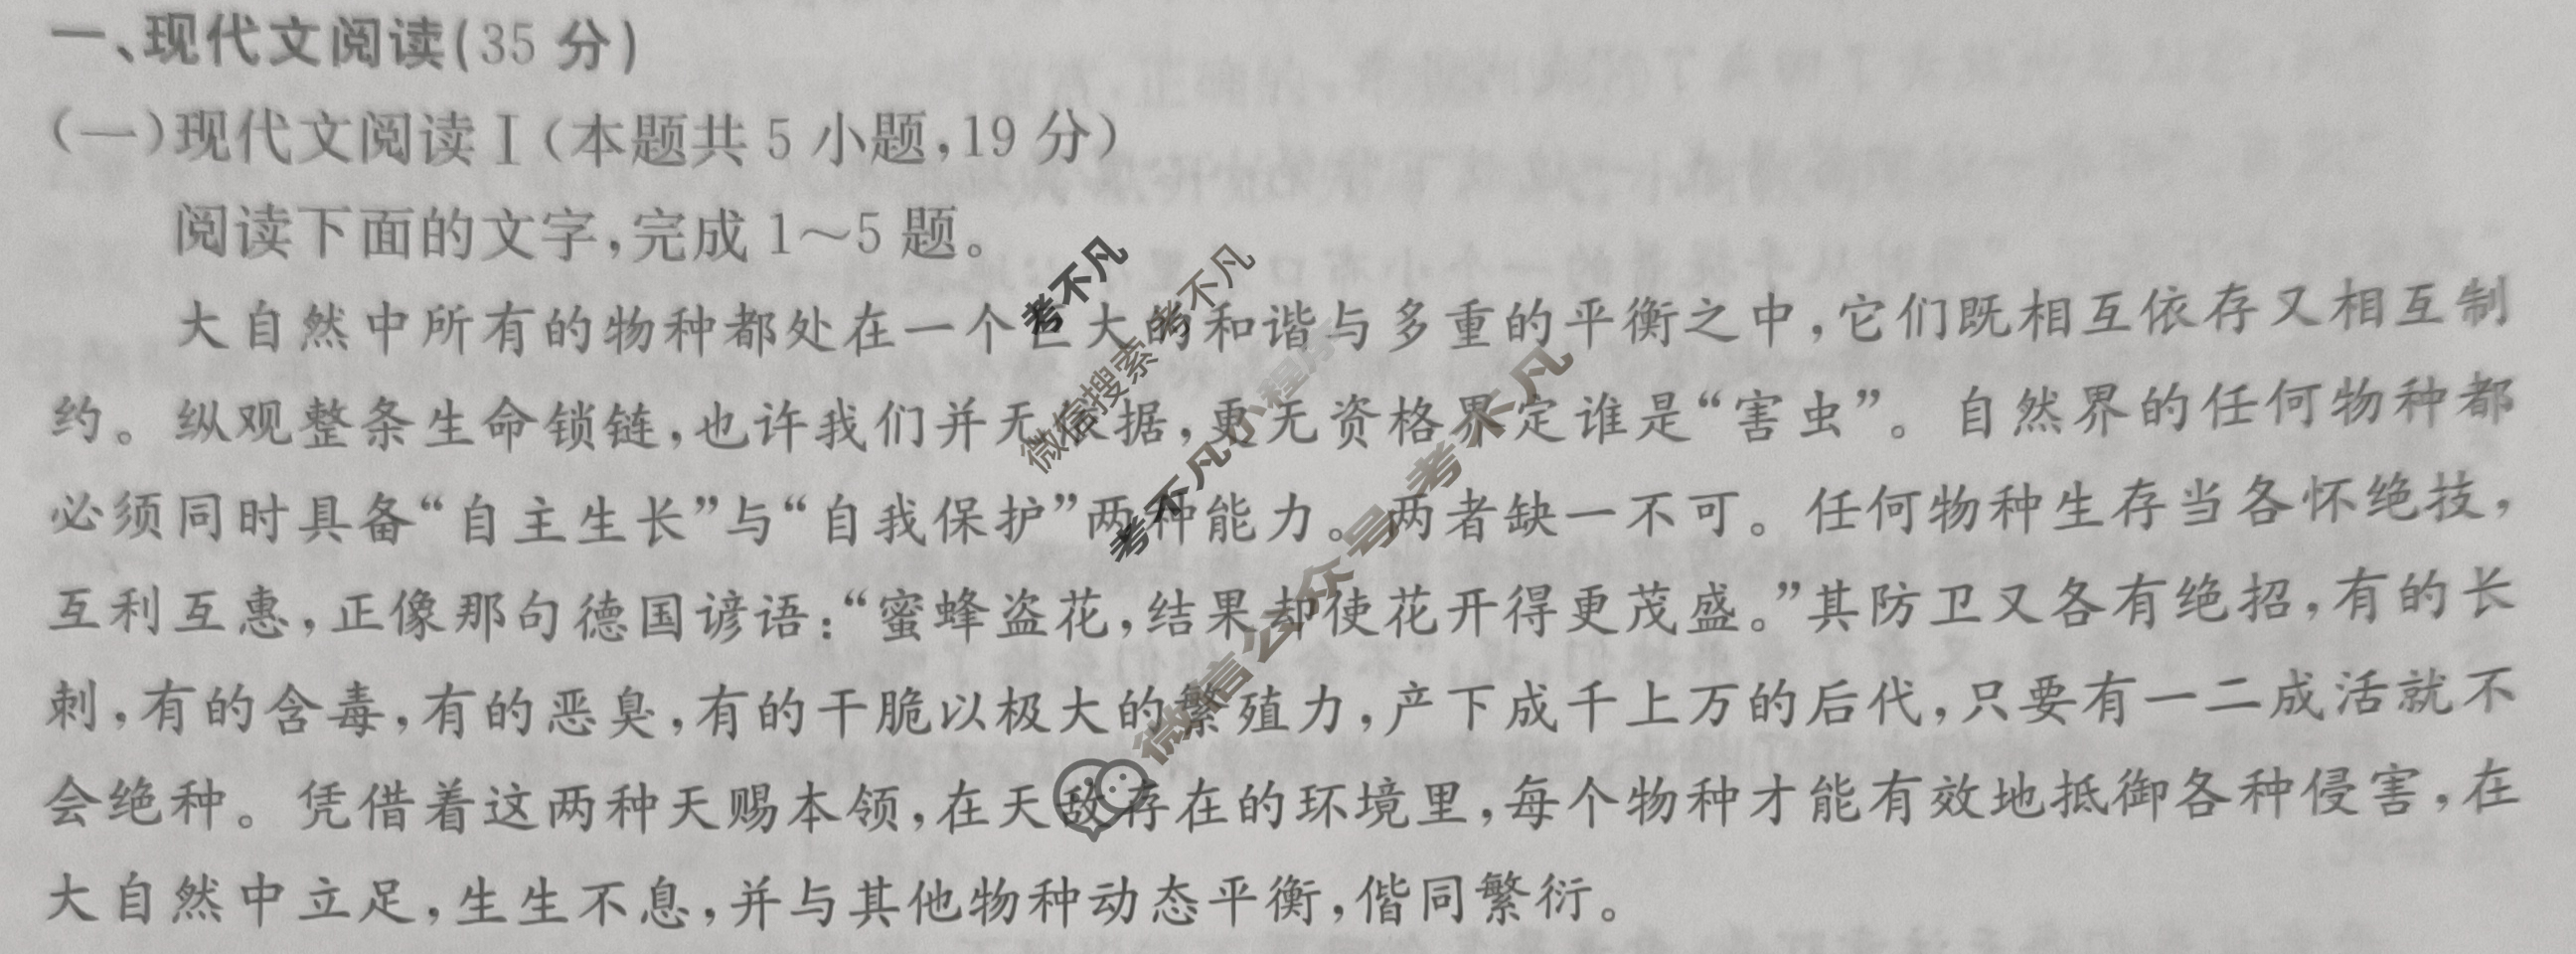 一、现代文阅读(35 分)
(一)现代文阅读Ⅰ(本题共 5 小题,19 分)
阅读下面的文字,完成 1～5 题。
大自然中所有的物种都处在一个巨大的和谐与多重的平衡之中,它们既相互依存又相互制
约。纵观整条生命锁链,也许我们并无依据,更无资格界定谁是“害虫”。自然界的任何物种都
必须同时具备“自主生长”与“自我保护”两种能力。两者缺一不可。任何物种生存当各怀绝技,
互利互惠,正像那句德国谚语:“蜜蜂盗花,结果却使花开得更茂盛。”其防卫又各有绝招,有的长
刺,有的含毒,有的恶臭,有的干脆以极大的繁殖力,产下成千上万的后代,只要有一二成活就不
会绝种。凭借着这两种天赐本领,在天敌存在的环境里,每个物种才能有效地抵御各种侵害,在
大自然中立足,生生不息,并与其他物种动态平衡,偕同繁衍。
考不凡
微信搜索 考不凡
考不凡小程序
微信公众号 考不凡